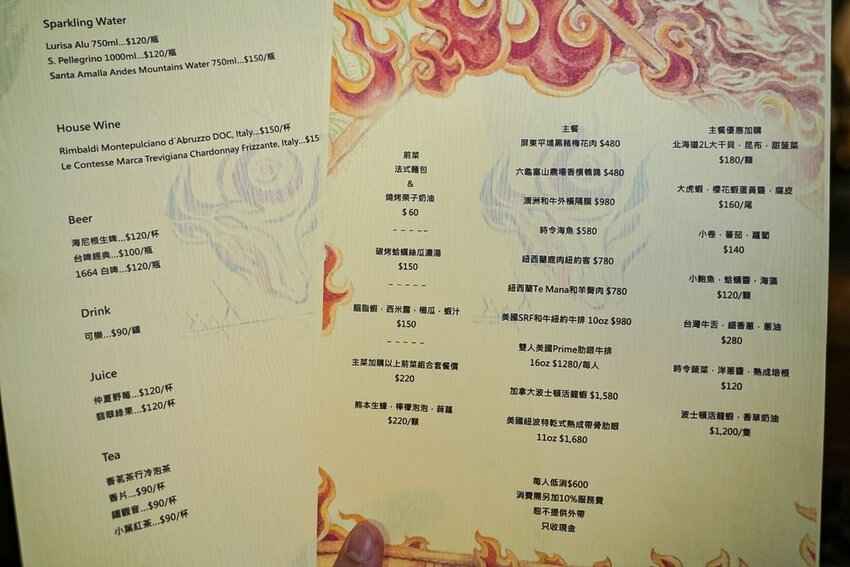 Sparkling Water
Lurisa Alu 750ml...$120/瓶
S. Pellegrino 1000ml...$120/瓶
Santa Amalla Andes Mountains Water 750ml...$150/瓶
House Wine
Rimbaldi Montepulciano d`Abruzzo DOC, Italy...$150/杯
Le Contesse Marca Trevigiana Chardonnay Frizzante, Italy...$15
Beer
海尼根生啤...$120/杯
台啤經典...$100/瓶
1664 白啤...$120/瓶
Drink
可樂...$90/罐
Juice
仲夏野莓...$120/杯
翡翠綠果...$120/杯
Tea
香茗茶行冷泡茶
香片...$90/杯
鐵觀音...$90/杯
小葉紅茶...$90/杯
前菜
法式麵包
&
燒烤栗子奶油
$ 60
碳烤蛤蠣絲瓜濃湯
$150
胭脂蝦．西米露．櫛瓜．蝦汁
$150
主菜加購以上前菜組合套餐價
$220
熊本生蠔．檸檬泡泡．蒔蘿
$220/顆
主餐
屏東平埔黑豬梅花肉 $480
六龜富山農場香檳鵪鶉 $480
澳洲和牛外橫隔膜 $980
時令海魚 $580
紐西蘭鹿肉紐約客 $780
紐西蘭Te Mana和羊臀肉 $780
美國SRF和牛紐約牛排 10oz $980
雙人美國Prime肋眼牛排
16oz $1280/每人
加拿大波士頓活龍蝦 $1,580
美國紐波特乾式熟成帶骨肋眼
11oz $1,680
每人低消$600
消費需另加10%服務費
恕不提供外帶
只收現金
主餐優惠加購
北海道2L大干貝．昆布．甜菠菜
$180/顆
大虎蝦．櫻花蝦蛋黃醬．腐皮
$160/尾
小卷．蕃茄．蘿蔔
$140
小鮑魚．蛤蠣醬．海藻
$120/顆
台灣牛舌．細香蔥．蔥油
$280
時令蔬菜．洋蔥醬．熟成培根
$120
波士頓活龍蝦．香草奶油
$1,200/隻